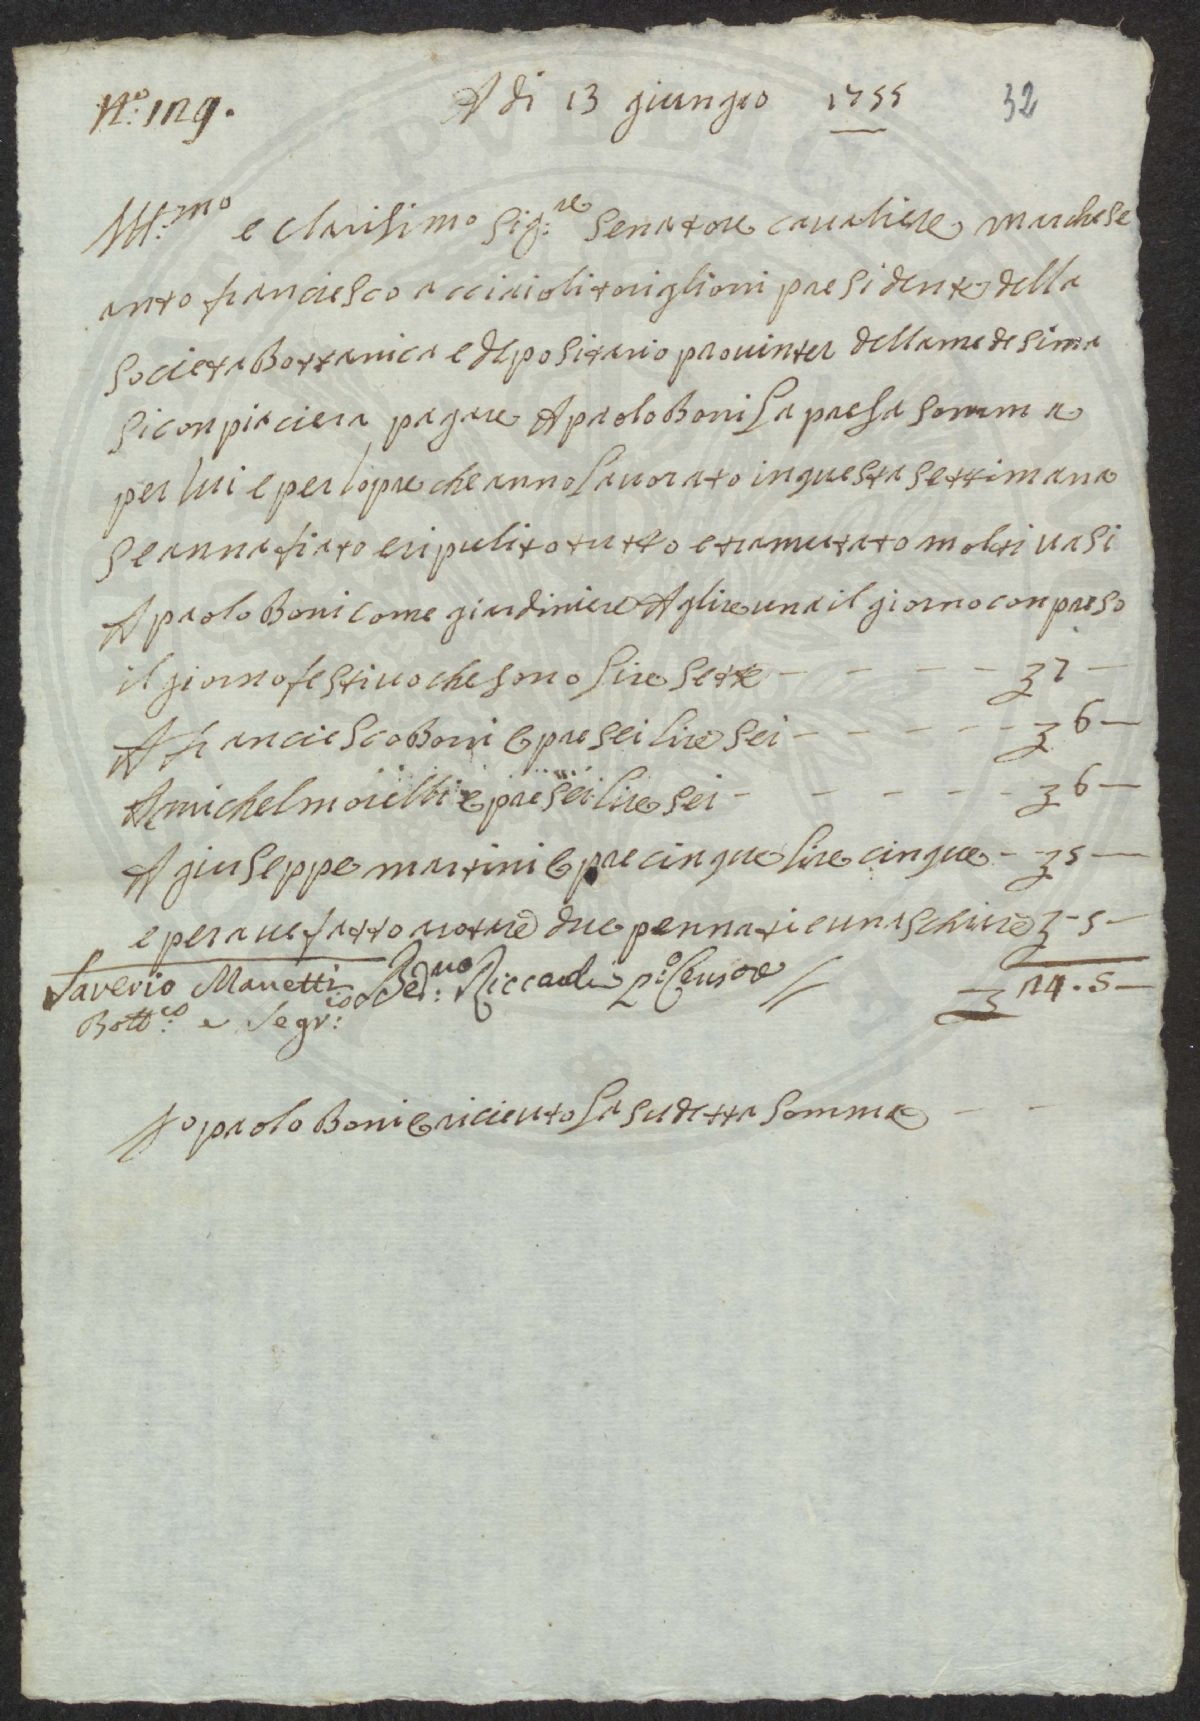 N.º 129.
A di 13 giungio 1755
32
Ill:mo e clarisimo Sig:re Senatore cavaliere marchese
anto franciesco acciaioli toriglioni presidente della
Societa Bottanica e depositario provinter della medesima
Si conpiaciera pagare A paolo Boni la presa somma
per lui e per lopre che anno lavorato in questa settimana
se annafiato e ripulito tutto e tramutato molti vasi
A paolo Boni come giardiniere A lire una il giorno conpreso
il giorno festivo che sono lire sette - - - - - 7 —
A franciesco Boni e pre sei lire sei - - - - - 6 —
A michel morelli e pre sei lire sei - - - - - 6 —
A giuseppe martini e pre cinque lire cinque - - 5 —
e per ave fatto arotare due pennati e una schure - 5 -
Saverio Manetti
Bott:co e Segr:io
Ber:no Riccardi p:o Censore //
24 . 5 —
Io paolo Boni e riceuto la sudetta somma - -